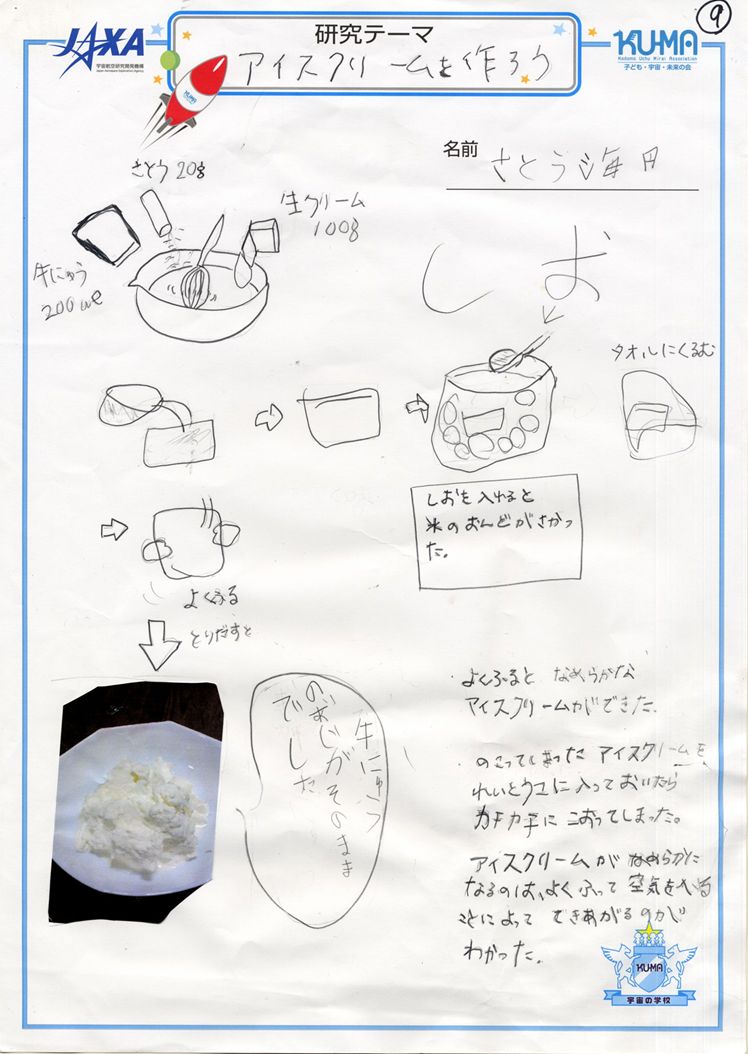 ⑨
JAXA
宇宙航空研究開発機構
Japan Aerospace Exploration Agency
研究テーマ
アイスクリームを作ろう
KU-MA
Kodomo Uchu Mirai Association
子ども・宇宙・未来の会
KU-MA
名前 さとう海
さとう 20g
生クリーム
100g
牛にゅう
200
しお
タオルにくるむ
しおを入れると
氷のおんどがさがっ
た。
よくふる
とりだすと
牛にゅう
のあじがそのまま
でした
よくふると なめらかな
アイスクリームができた。
のこってしまった アイスクリームを
れいとうコに入っておいたら
カチカチに こおってしまった。
アイスクリームが なめらかに
なるのは、よくふって 空気を入る
ことによって できあがるのが
わかった。
KU-MA
宇宙の学校